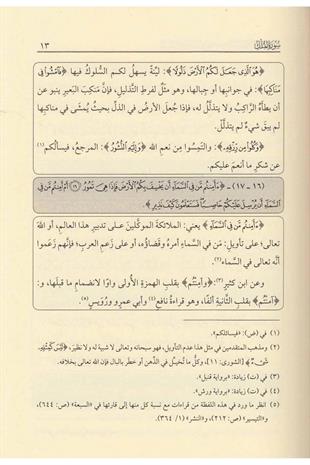 سورة الملك
١٣
﴿هُوَ الَّذِي جَعَلَ لَكُمُ الْأَرْضَ ذَلُولًا﴾: ليّنة يسهل لكم السلوك فيها ﴿فَامْشُوا فِي
مَنَاكِبِهَا﴾: في جوانبها أو جبالها، وهو مثلٌ لفرط التذليل، فإنَّ منكِبَ البعير ينبو عن
أن يطأه الراكبُ ولا يتذلَّل له، فإذا جُعل الأرضُ في الذلِّ بحيثُ يُمشَى في مناكبِها
لم يبق شيءٌ لم يتذلَّل.
﴿وَكُلُوا مِنْ رِزْقِهِ﴾: والتمِسُوا من نعمِ الله ﴿وَإِلَيْهِ النُّشُورُ﴾: المرجعُ، فيسألُكم(١)
عن شكرِ ما أنعمَ عليكم.
(١٦ - ١٧) - ﴿ءَأَمِنتُم مَّن فِي السَّمَاءِ أَن يَخْسِفَ بِكُمُ الْأَرْضَ فَإِذَا هِيَ تَمُورُ (١٦) أَمْ أَمِنتُم مَّن فِي
السَّمَاءِ أَن يُرْسِلَ عَلَيْكُمْ حَاصِبًا فَسَتَعْلَمُونَ كَيْفَ نَذِيرِ﴾.
﴿ءَأَمِنتُم مَّن فِي السَّمَاءِ﴾ يعني: الملائكةَ الموكَّلينَ على تدبيرِ هذا العالم، أو اللهَ
تعالى؛ على تأويلِ: مَن في السماءِ أمرُه وقضاؤُه، أو على زعمِ العربِ؛ فإنَّهم زعَموا
أنَّه تعالى في السماء(٢).
وعن ابنِ كثيرٍ(٣): ﴿وامِنتُم﴾ بقلبِ الهمزةِ الأولى واوًا لانضمامِ ما قبلَها، و:
﴿آمِنتُم﴾ بقلبِ الثانيةِ ألفًا، وهو قراءةُ نافعٍ(٤) وأبي عمرٍو ورُوَيسٍ(٥).
(١) في (ض): «فيسائلكم».
(٢) ومذهب المتقدمين في مثل هذا عدم التأويل، فهو سبحانه وتعالى لا شبيه له ولا نظير، ﴿لَيْسَ كَمِثْلِهِ
شَيْءٌ﴾ [الشورى: ١١]، وكلُّ ما تُخيِّل في الذهن أو خطر بالبال فإن الله تعالى بخلافه.
(٣) في (ت) زيادة: «برواية قنبل».
(٤) في (ت) زيادة: «برواية ورش».
(٥) انظر ما ورد في هذه اللفظة من قراءات مع نسبة كل منها إلى قارئها في «السبعة» (ص: ٦٤٤)،
و«التيسير» (ص: ٢١٢)، و«النشر» (١/ ٣٦٤).